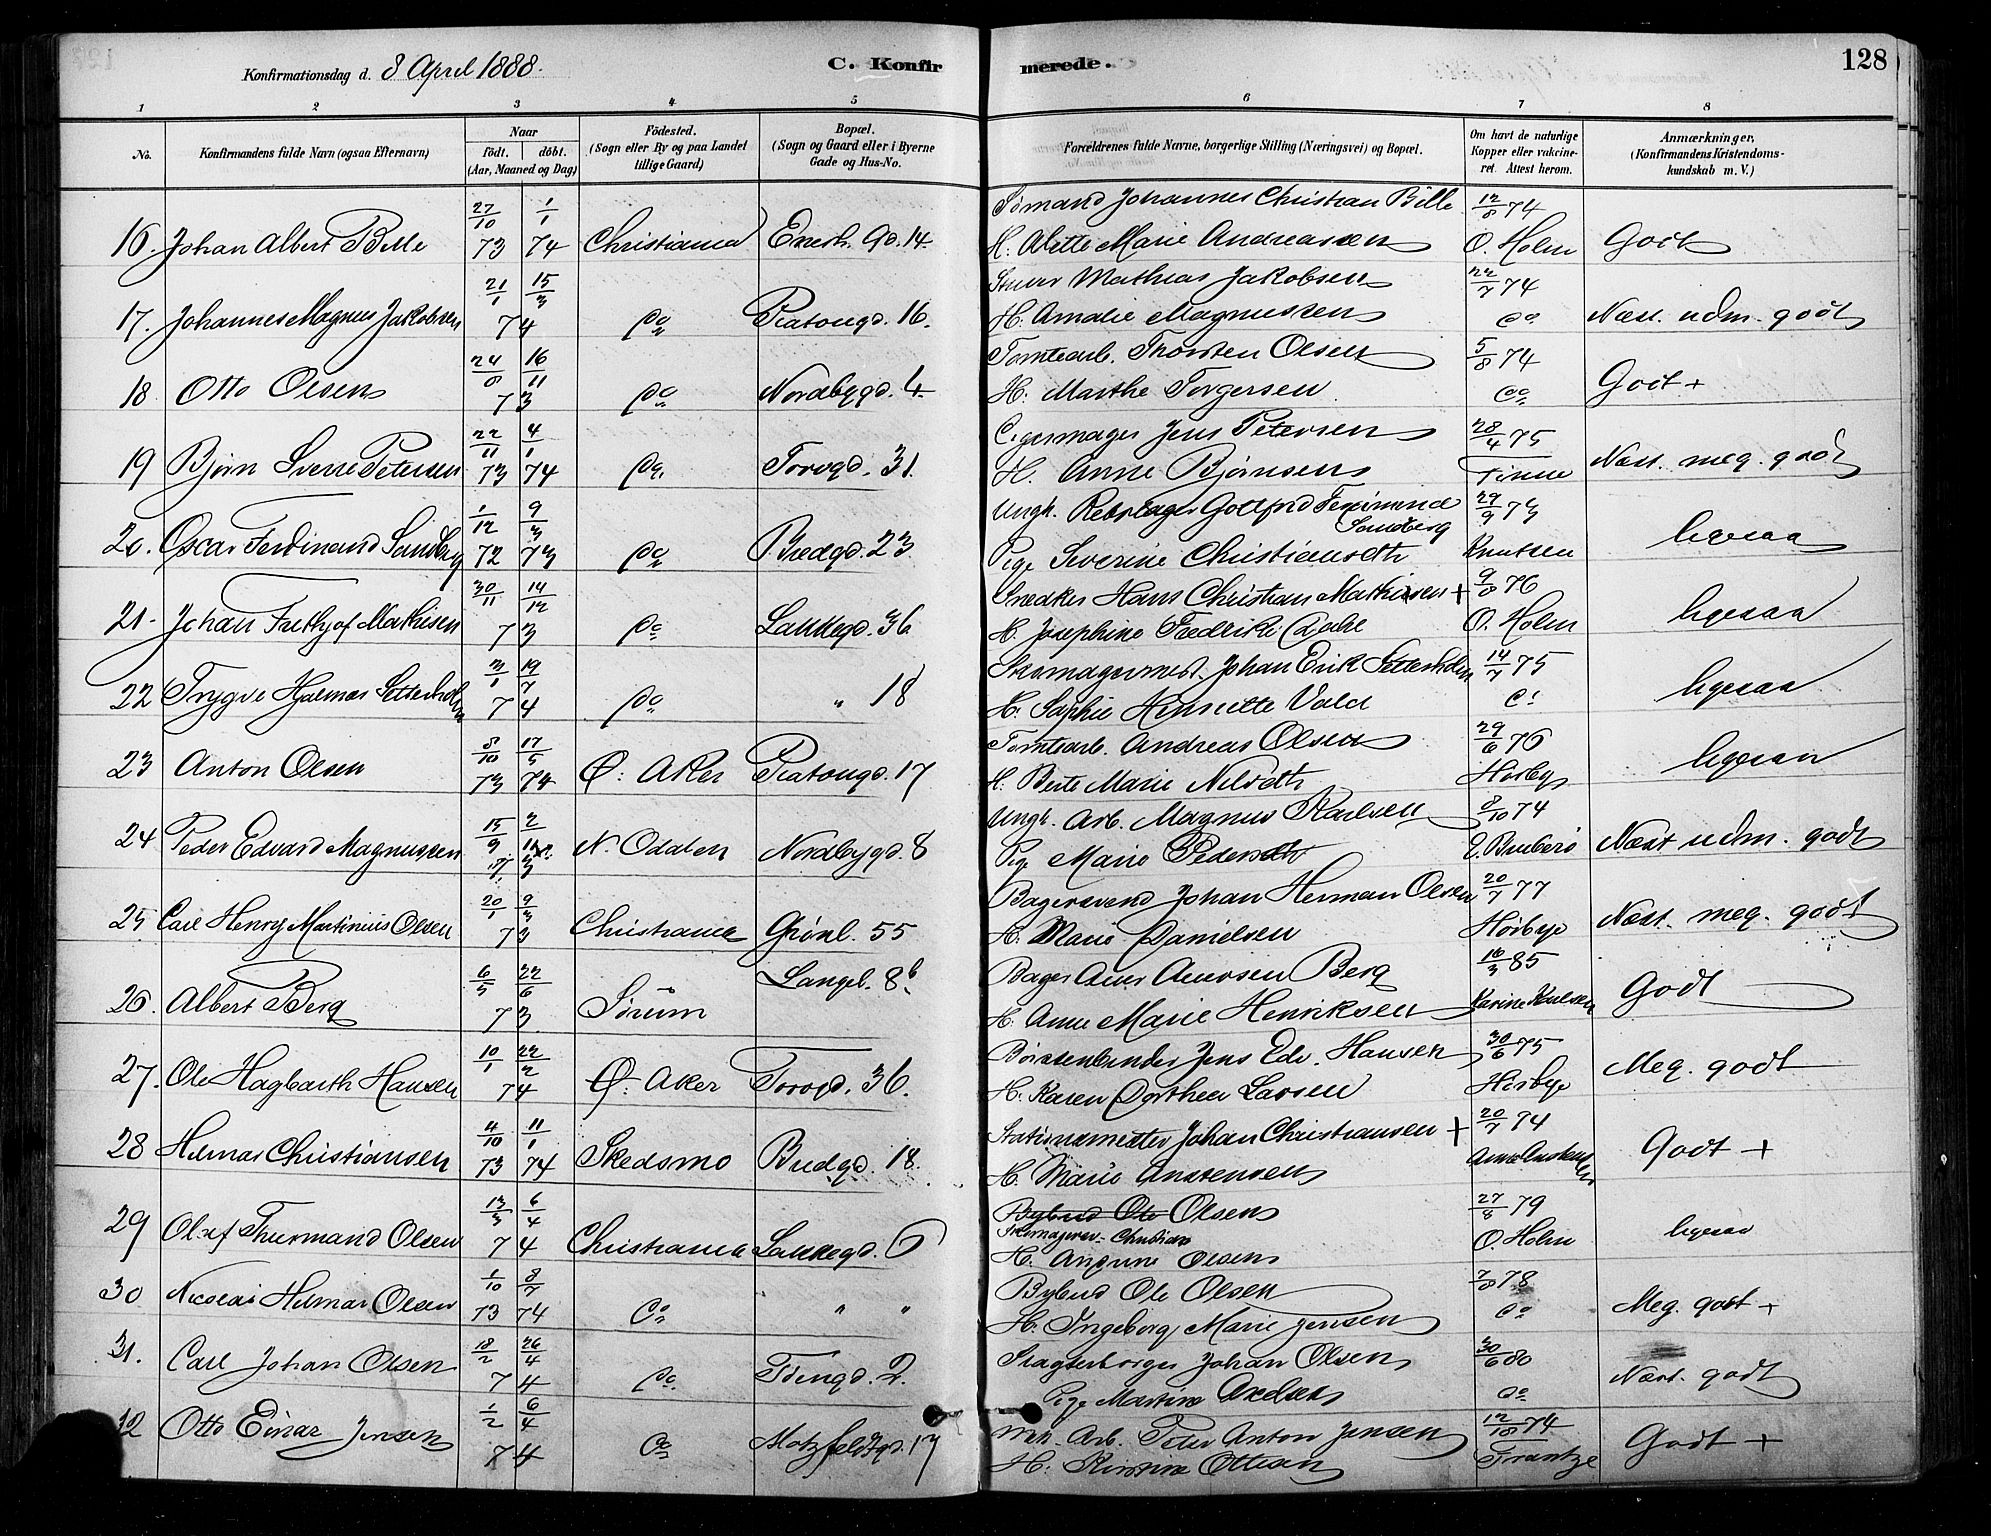 128
Konfirmationsdag d. 8 April 1888.
C. Konfirmerede.
1 2 3 4 5 6 7 8
No.
Konfirmandens fulde Navn (ogsaa Efternavn)
Naar
födt. döbt.
(Aar, Maaned og Dag)
Födested.
(Sogn eller By og paa Landet
tillige Gaard)
Bopæl.
(Sogn og Gaard eller i Byerne
Gade og Hus-No.
Forældrenes fulde Navne, borgerlige Stilling (Næringsvei) og Bopæl.
Om havt de naturlige
Kopper eller vakcine-
ret. Attest herom.
Anmærkninger,
(Konfirmandens Kristendoms-
kundskab m. V.)
27/10 1/1 Sömand Johannes Christian Bille 12/8 74
16. Johan Albert Bille 73 74 Christiania Enerh. gd. 14. H. Alette Marie Andreassen O. Holm Godt
21/1 15/3 Stuer Mathias Jakobsen 22/7 74
17. Johannes Magnus Jakobsen 74 do Platougd. 16. H. Amalie Magnussen do Næst. udm. godt
24/8 16/11 Tomtearb. Thorsten Olsen 5/8 74
18. Otto Olsen 73 do Nordbygd. 4. H. Marthe Torgersen do Godt +
22/11 4/1 Cigarmager Jens Petersen 28/4 75
19 Bjørn Sverre Petersen 73 74 do Torvgd. 31. H. Anne Bjørnsen Finne Næst. meg. godt
1/12 9/3 Ungk. Rebslager Gottfred Ferdinand Sandberg 29/9 73
20. Oscar Ferdinand Sandberg 72 73 do Bredgd. 23 Pige Severine Christiansdtr Knutsen ligesaa
30/11 14/12 Snedker Hans Christian Mathisen + 9/8 76
21. Johan Frithjof Mathisen 73 do Lakkegd. 36 H. Josephine Fredrikke O. Holm ligesaa
3/1 19/7 Skomagermest. Johan Erik Setterholm 14/7 75
22 Trygve Hjalmar Setterholm 74 do " 18 H. Sophie Henriette Vold do ligesaa
8/10 17/5 Tomtearb. Andreas Olsen 29/6 76
23 Anton Olsen 73 74 Ø. Aker Platougd. 17 H. Berte Marie Nilsdtr Hørbye ligesaa
15/9 2/11 Ungk. Arb. Magnus Karlsen 8/10 74
24 Peder Edvard Magnussen 73 N. Odalen Nordbygd. 8 Pige Marie Pedersdtr Næst udm. godt
20/1 9/3 Bagersvend Johan Herman Olsen 20/7 77
25 Carl Henry Martinius Olsen 73 Christiania Grønl. 55 H. Marie Danielsen Hørbye Næst. meg. godt
6/5 22/6 Langel. 8b Bager Berg 16/3 85
26. Albert Berg 73 Sørum H. Anne Marie Henriksen Karine Karlsen Godt
10/1 22/2 Børstenbinder Jens Edv. Hansen 30/6 75
27. Ole Hagbarth Hansen 74 Ø. Aker Torvgd. 36. H. Karen Dorthea Larsen Hørbye Meg. godt
4/10 11/1 Stationsmester Johan Christiansen + 20/7 74
28 Hilmar Christiansen 73 74 Skedsmo Bredgd. 18. H. Marie Anstensen Godt +
13/3 6/4 Bybud Ole Olsen 27/8 79
29 Olaf Thurmand Olsen 74 Christiania Lakkegd. 6 Christian O. Holm ligesaa
H. Olsen
1/10 8/7 Bybud Ole Olsen 7/8 78
30 Nicolai Hilmar Olsen 73 74 do " " H. Ingeborg Marie Jensen do Meg. godt +
18/2 26/4 Slagterborger Johan Olsen 30/6 80
31. Carl Johan Olsen 74 do Töiengd. 2. Pige Martine do Næst. godt
1/2 6/4 Arb. Peter Anton Jensen 12/10 74
32 Otto Einar Jensen 74 do Motzfeldtgd. 17 H. Kirstine Ottesen Frantze Godt +